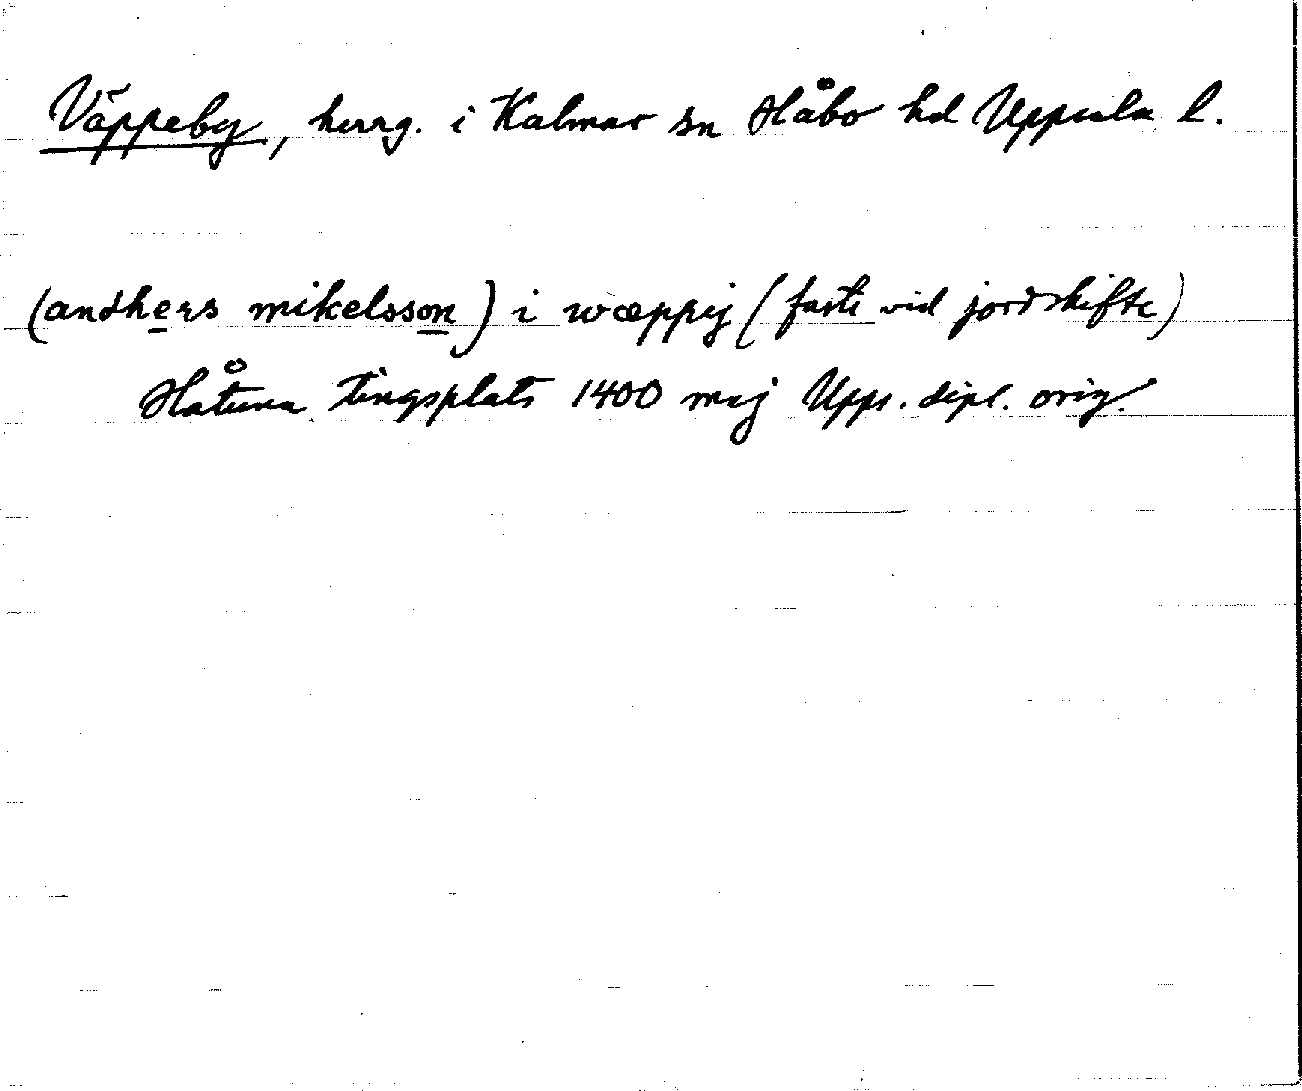 Väppeby, herrg. i Kalmar sn Håbo hd Uppsala l.
(andhers mikelsson) i wæppij (faste vid jordskifte)
Håtuna tingsplats 1400 maj Upps. dipl. orig.